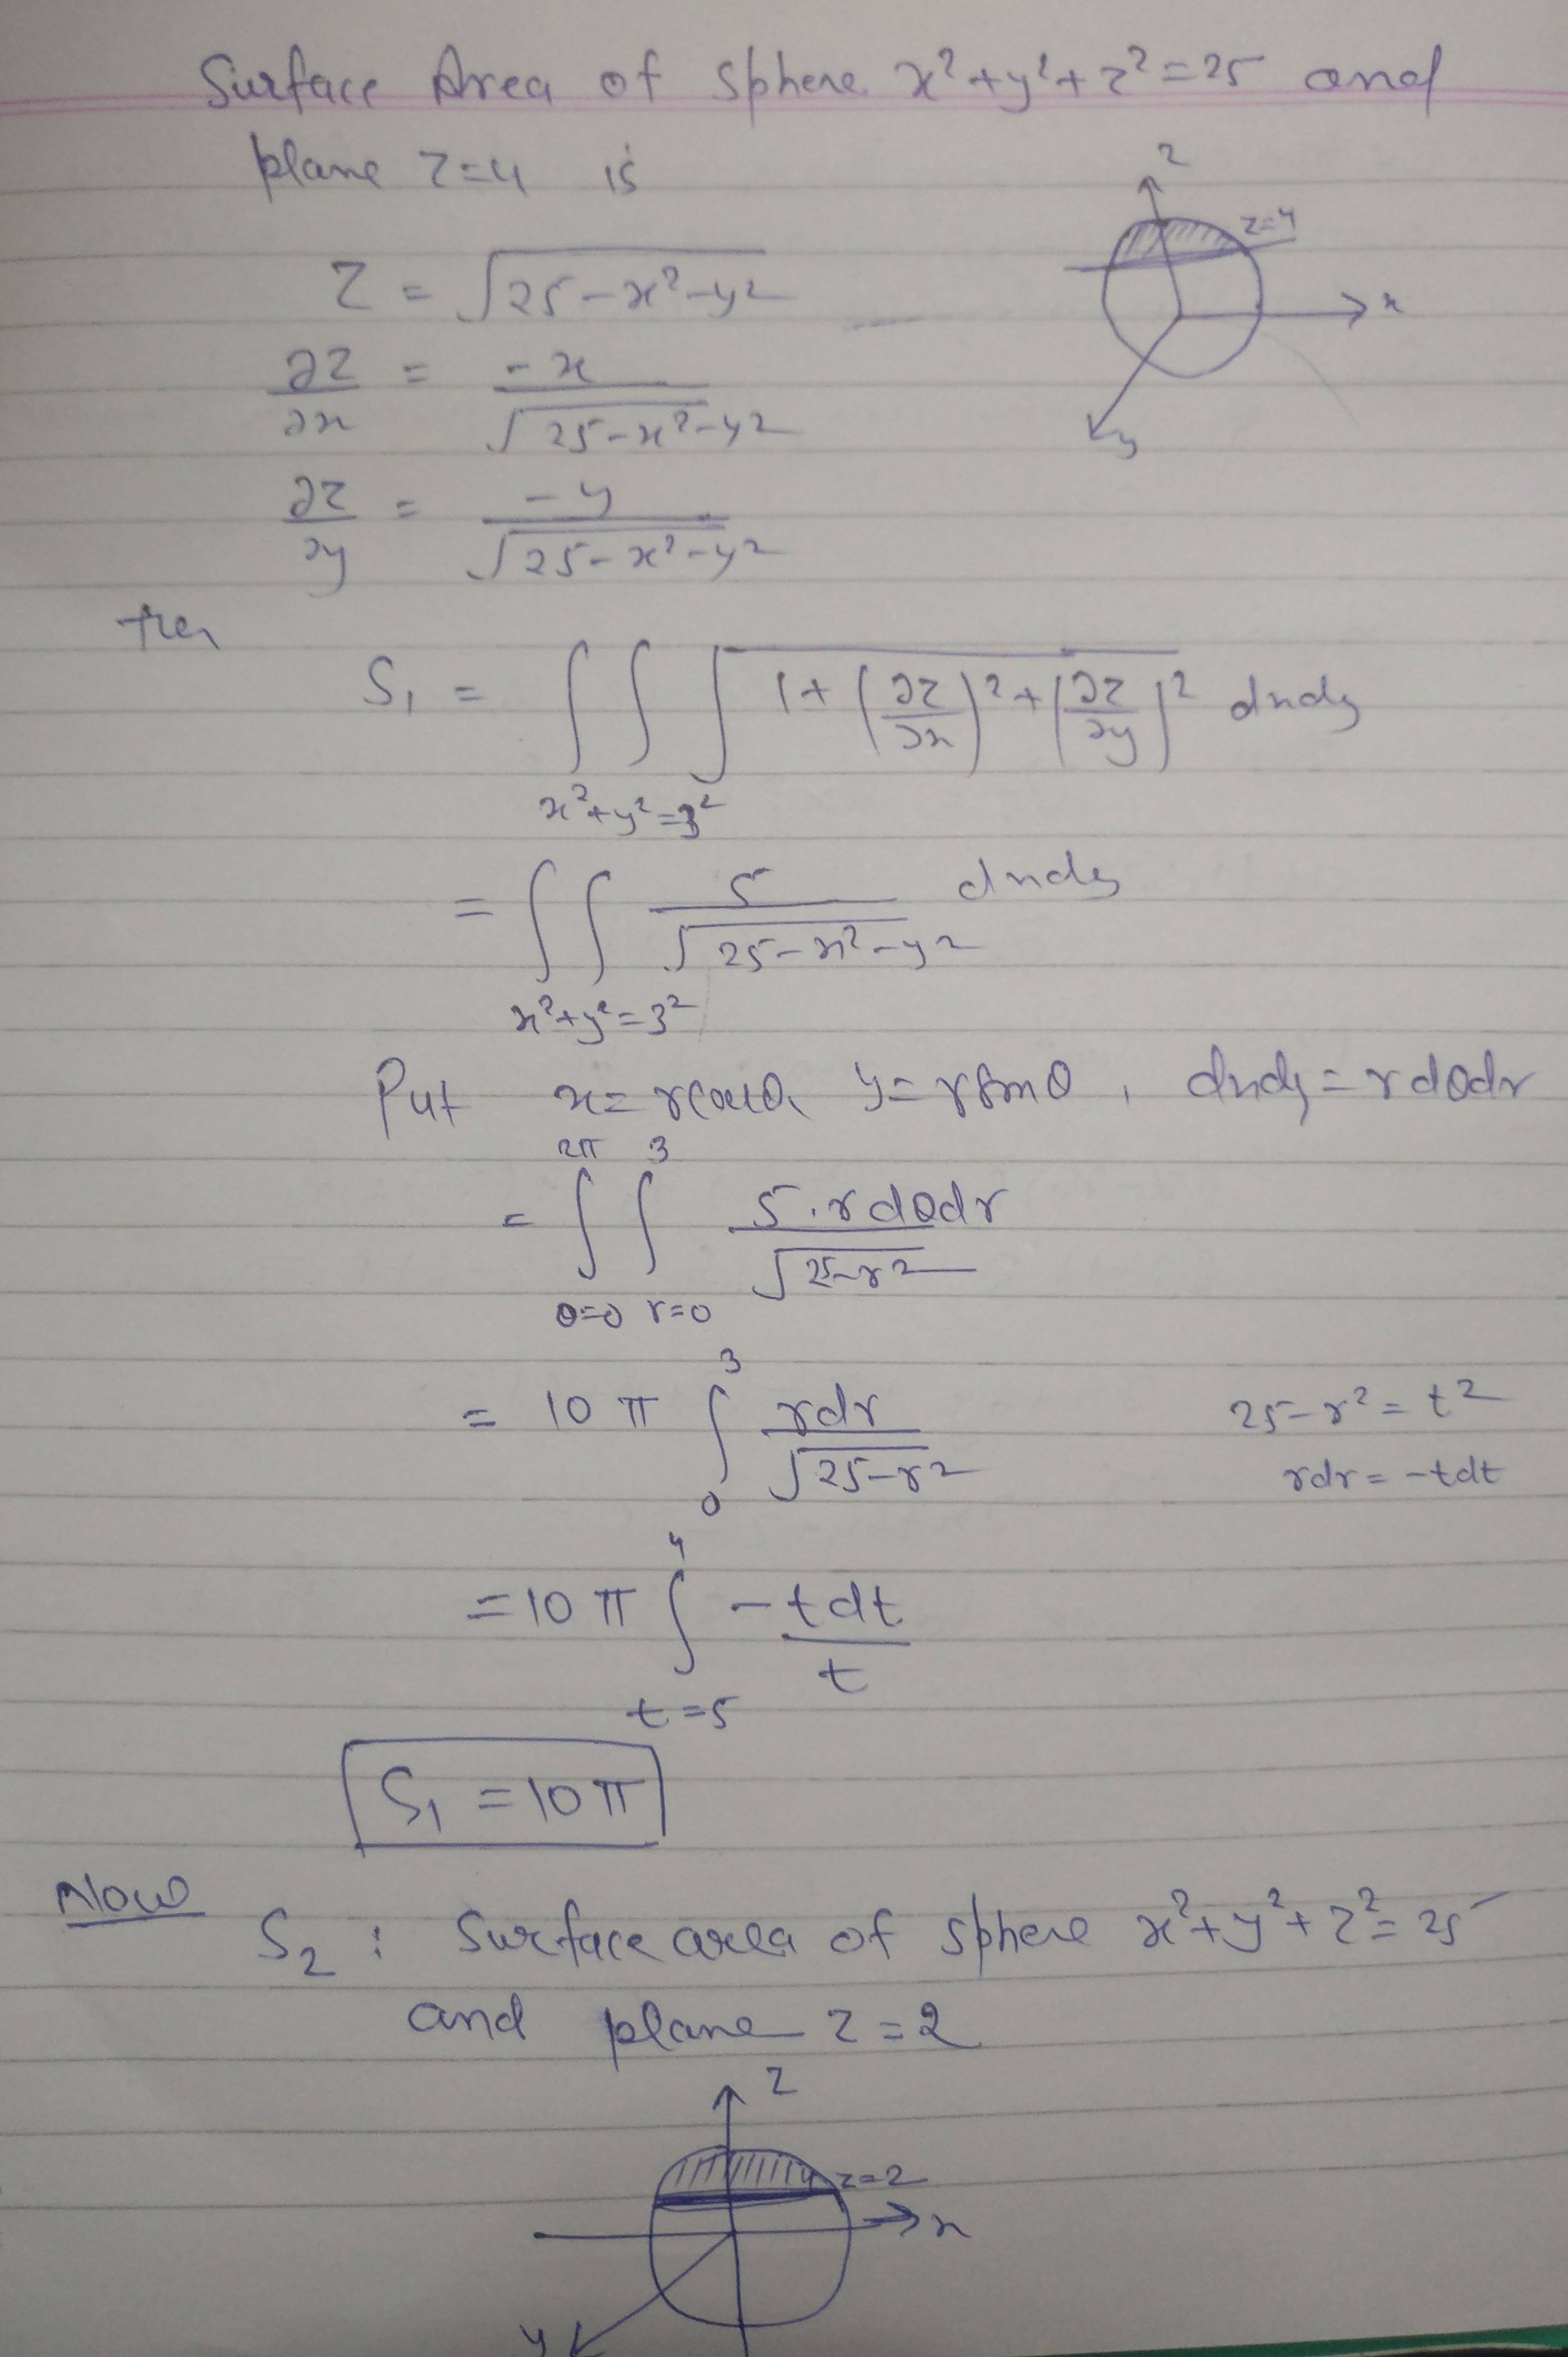 Surface Area of Sphere x²+y²+z²=25 and
plane z=4 is
z
z=4
x
y
z = √25-x²-y²
∂z/∂x = -x/√25-x²-y²
∂z/∂y = -y/√25-x²-y²
then
S₁ = ∫∫ √1+(∂z/∂x)²+(∂z/∂y)² dxdy
x²+y²=3²
= ∫∫ 5/√25-x²-y² dxdy
x²+y²=3²
Put x=rcosθ, y=rsinθ, dxdy=rdθdr
2π 3
= ∫ ∫ 5.rdθdr/√25-r²
θ=0 r=0
3
= 10π ∫ rdr/√25-r² 25-r²=t²
0 rdr=-tdt
4
=10π ∫ -tdt/t
t=5
S₁ =10π
Now
S₂ : Surface area of sphere x²+y²+z²=25
and plane z=2
z
z=2
x
y